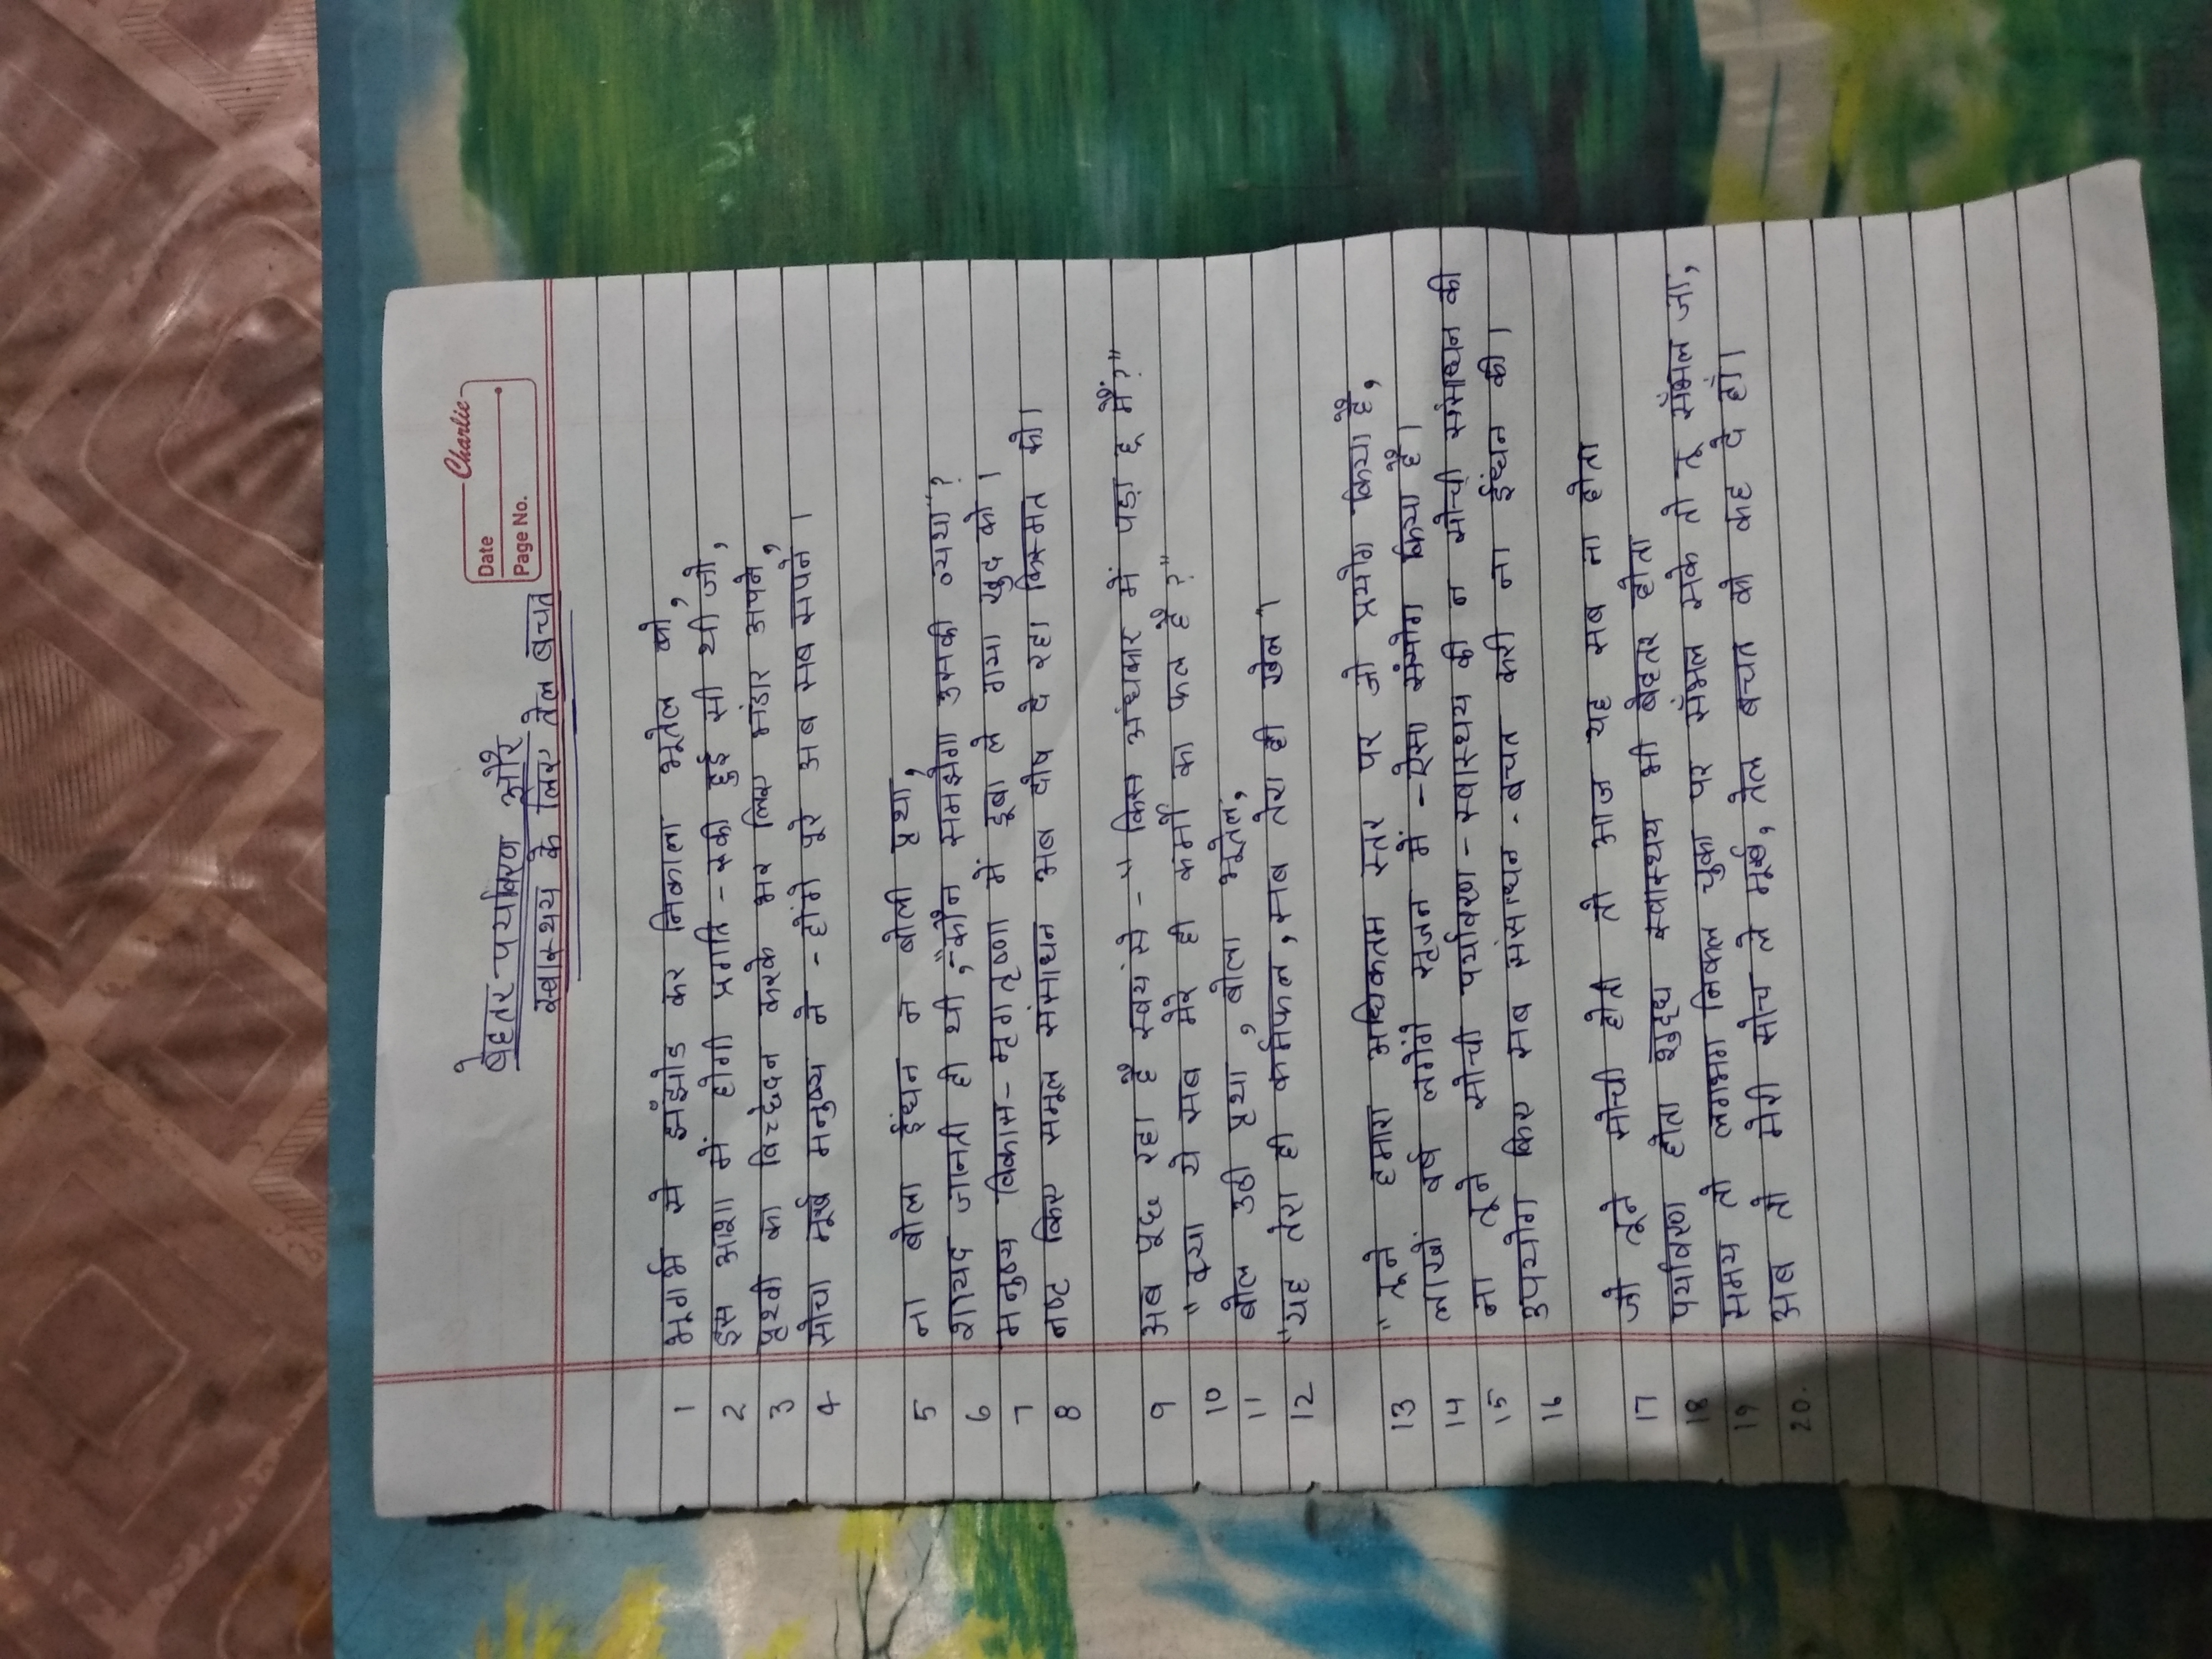 Charlie
Date
Page No.
बेहतर पर्यावरण और
स्वास्थय के लिए तेल बचत
1 भूगर्भ से झँझोड कर निकाला भूतेल को,
2 इस आशा में होगी प्रगति - रुकी हुई सी थी जो,
3 पृथ्वी का विच्छेदन करके भर लिए भंडार अपने,
4 सोचा मूर्ख मनुष्य ने - होंगे पूरे अब सब सपने ।
5 ना बोला ईंधन न बोली पृथा,
6 शायद जानती ही थी,-"कौन समझेगा उसकी व्यथा"?
7 मनुष्य विकास- मृगतृष्णा में डूबा ले गया खुद को ।
8 नष्ट किए समूल संसाधन अब दोष दे रहा किस्मत को।
9 अब पूछ रहा है स्वयं से - " किस अंधकार में पड़ा हू मैं?"
10 "क्या ये सब मेरे ही कर्मो का फल है ?"
11 बोल उठी पृथा, बोला भूतेल,
12 "यह तेरा ही कर्मफल, सब तेरा ही खेल"।
13 "तूने हमारा अधिकतम स्तर पर जो प्रयोग किया है,
14 लाखों वर्ष लगेंगे सृजन में - ऐसा संयोग किया है।
15 ना तूने सोची पर्यावरण - स्वास्थय की न सोची संसाधन की
16 उपयोग किए सब संसाधन - बचत करी ना ईंधन की ।
17 जो तूने सोची होती तो आज यह सब ना होता
18 पर्यावरण होता शुद्ध स्वास्थय भी बेहतर होता
19 समय तो लगभग निकल चुका पर सँभल सके तो तू सँभल जा,
20. अब तो मेरी सोच ले मूर्ख, तेल बचत को कह दे हाँ।